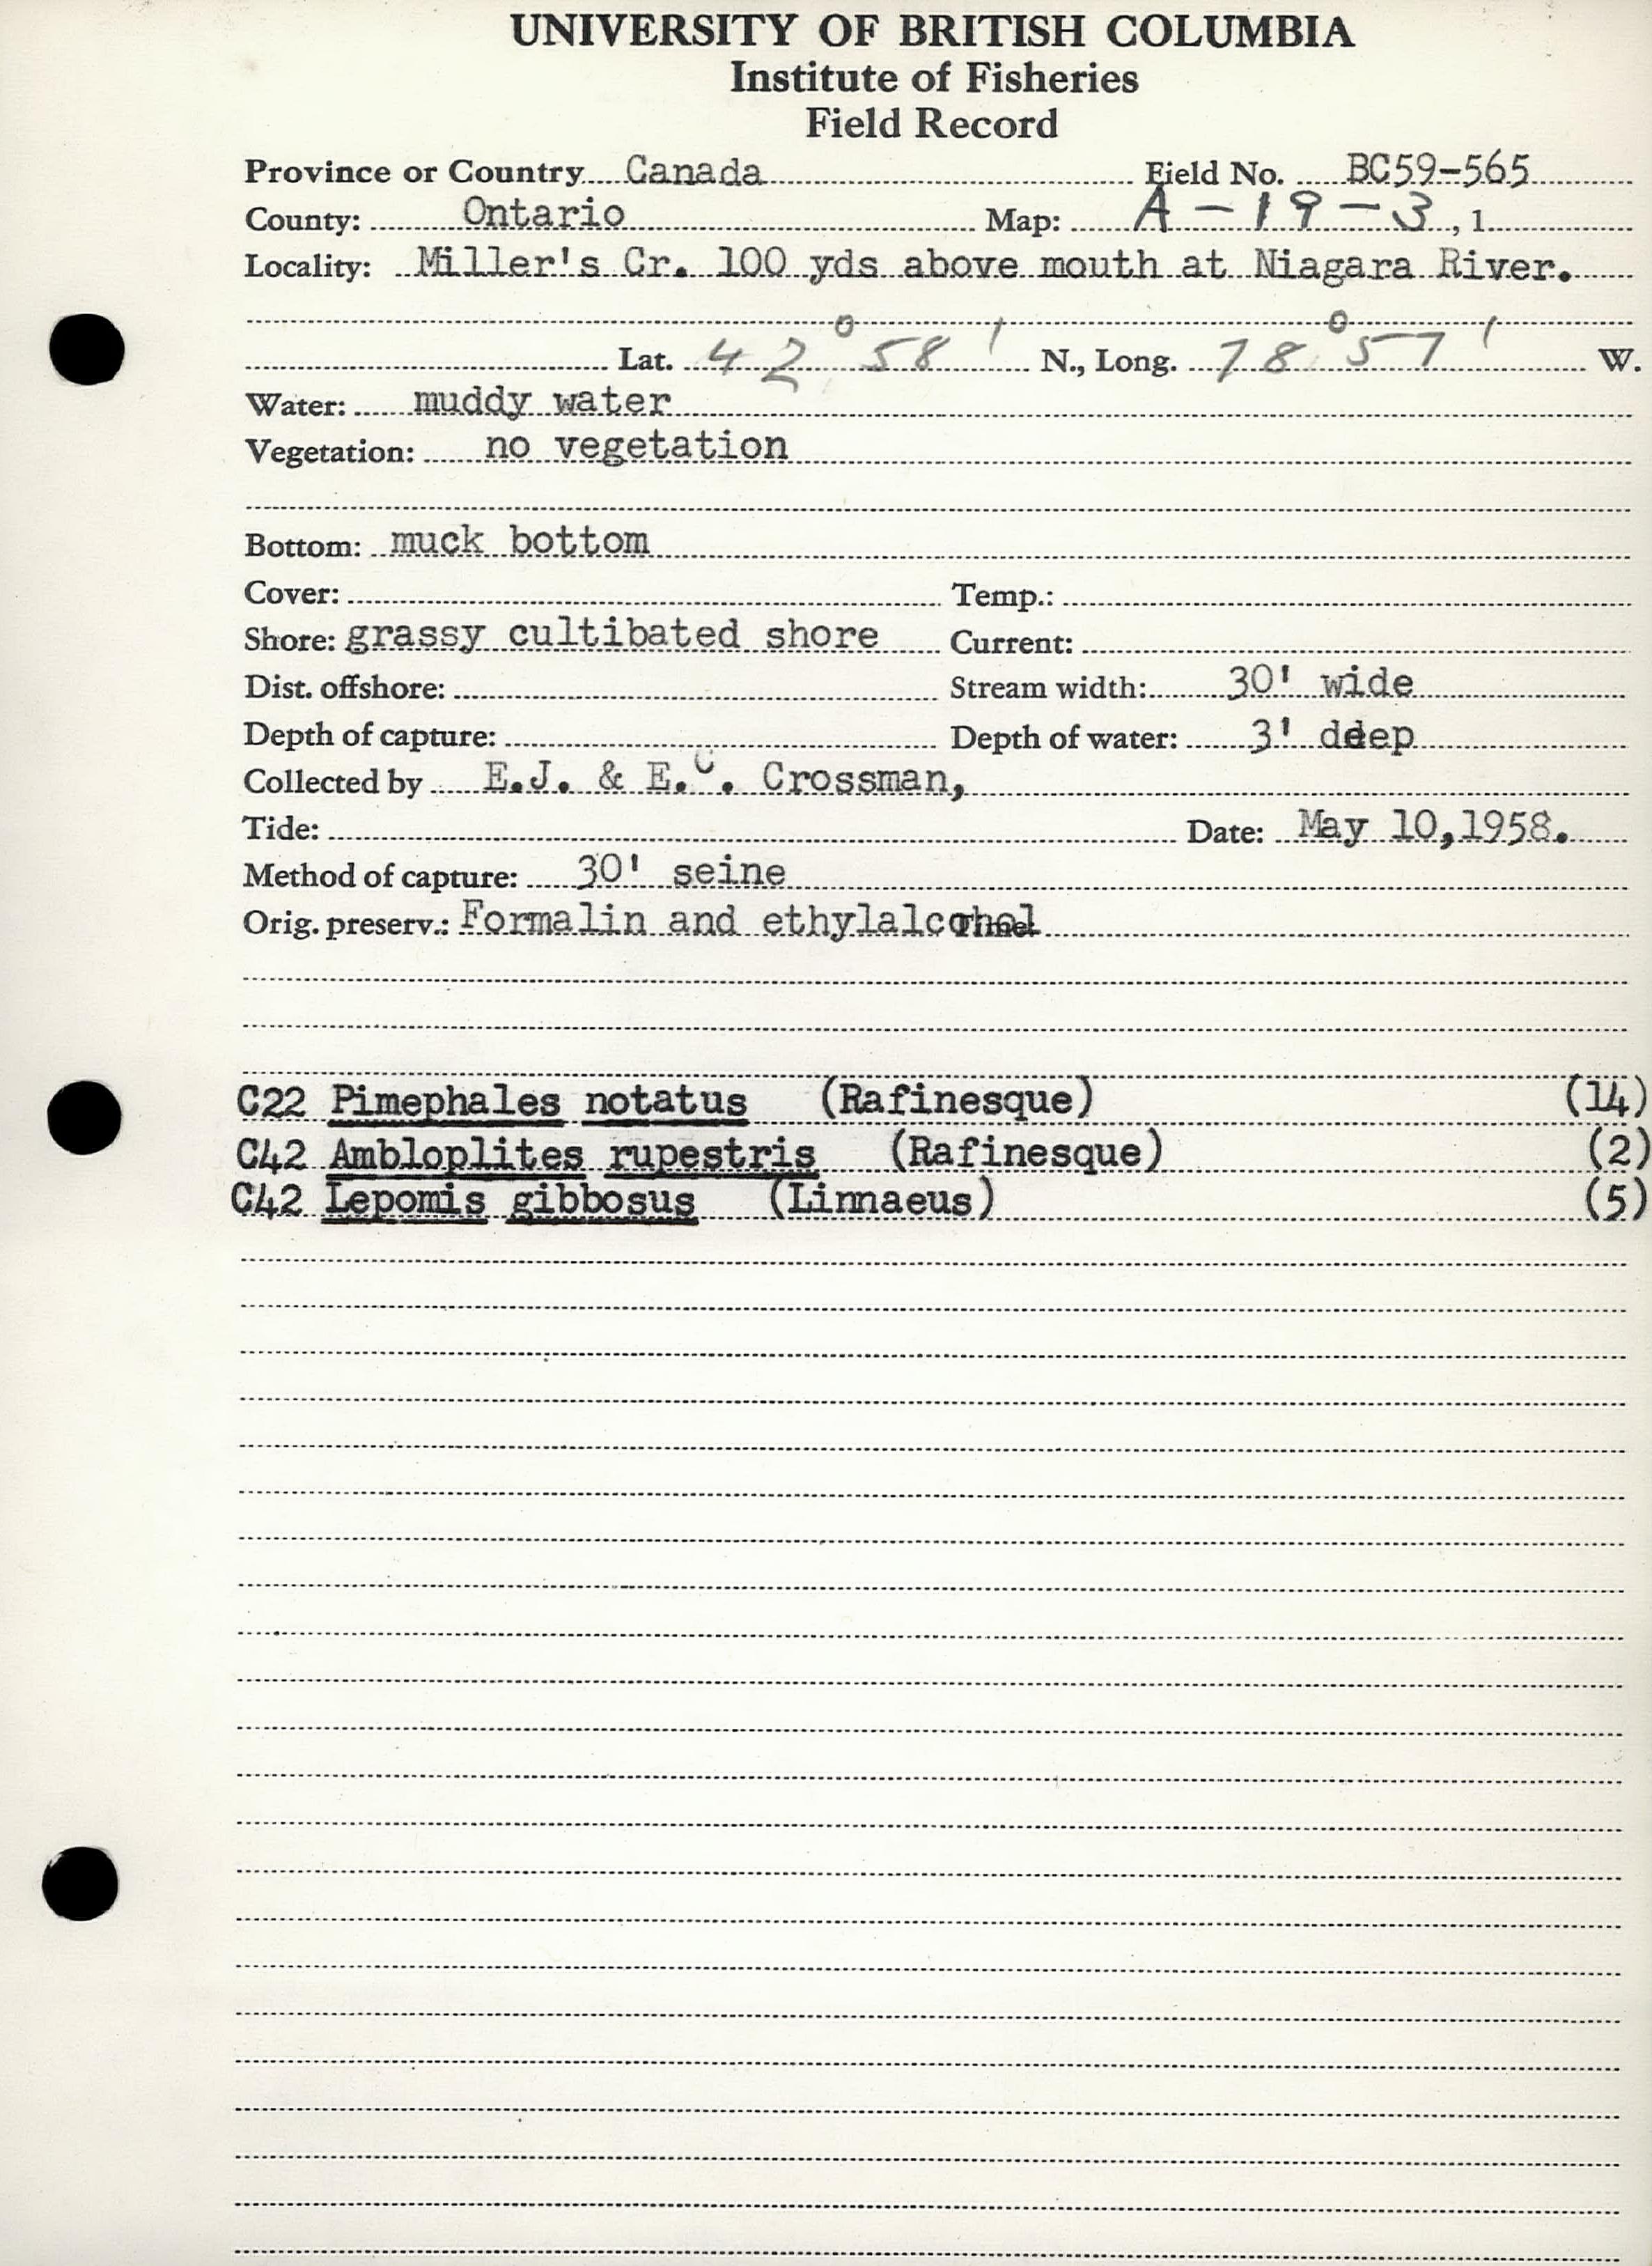 UNIVERSITY OF BRITISH COLUMBIA
Institute of Fisheries
Field Record
Province or Country Canada Field No. BC59-565
County: Ontario Map: A-19-3, 1
Locality: Miller's Cr. 100 yds above mouth at Niagara River.
Lat. 42°58' N., Long. 78°57' W.
Water: muddy water
Vegetation: no vegetation
Bottom: muck bottom
Cover: Temp.:
Shore: grassy cultibated shore Current:
Dist. offshore: Stream width: 30' wide
Depth of capture: Depth of water: 3' deep
Collected by E.J. & E.C. Crossman,
Tide: Date: May 10,1958.
Method of capture: 30' seine
Orig. preserv.: Formalin and ethylalcohol Time:
C22 Pimephales notatus (Rafinesque) (14)
C42 Ambloplites rupestris (Rafinesque) (2)
C42 Lepomis gibbosus (Linnaeus) (5)